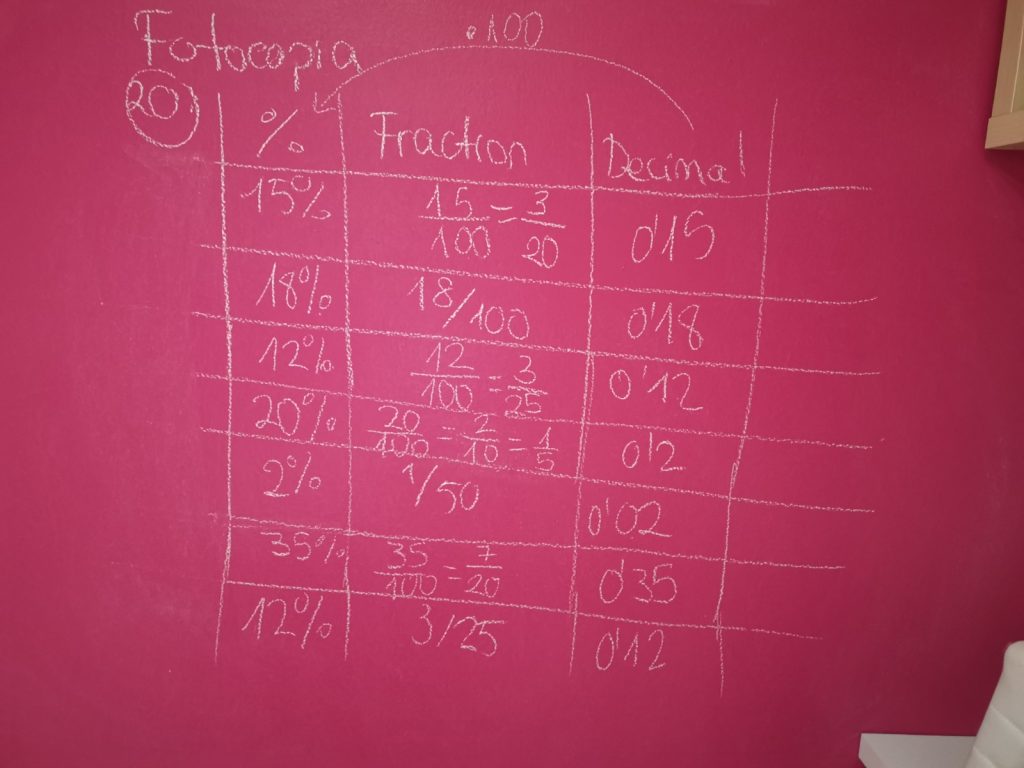 Fotocopia
·100
20
% Fraction Decimal
15% 15/100 = 3/20 0'15
18% 18/100 0'18
12% 12/100 = 3/25 0'12
20% 20/100 = 2/10 = 1/5 0'2
2% 1/50 0'02
35% 35/100 = 7/20 0'35
12% 3/25 0'12